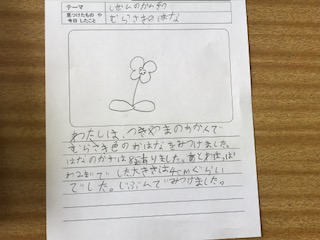 テーマ
しぜんのかんさつ
見つけたもの や
今日 したこと
むらさきのはな
わたしは、つきやまのちかくで
むらさき色のおはなをみつけました。
はなのかずは
ありました。あとはっぱ
わ2まいでした大きさは4cmぐらい
でした。じぶんでみつけました。